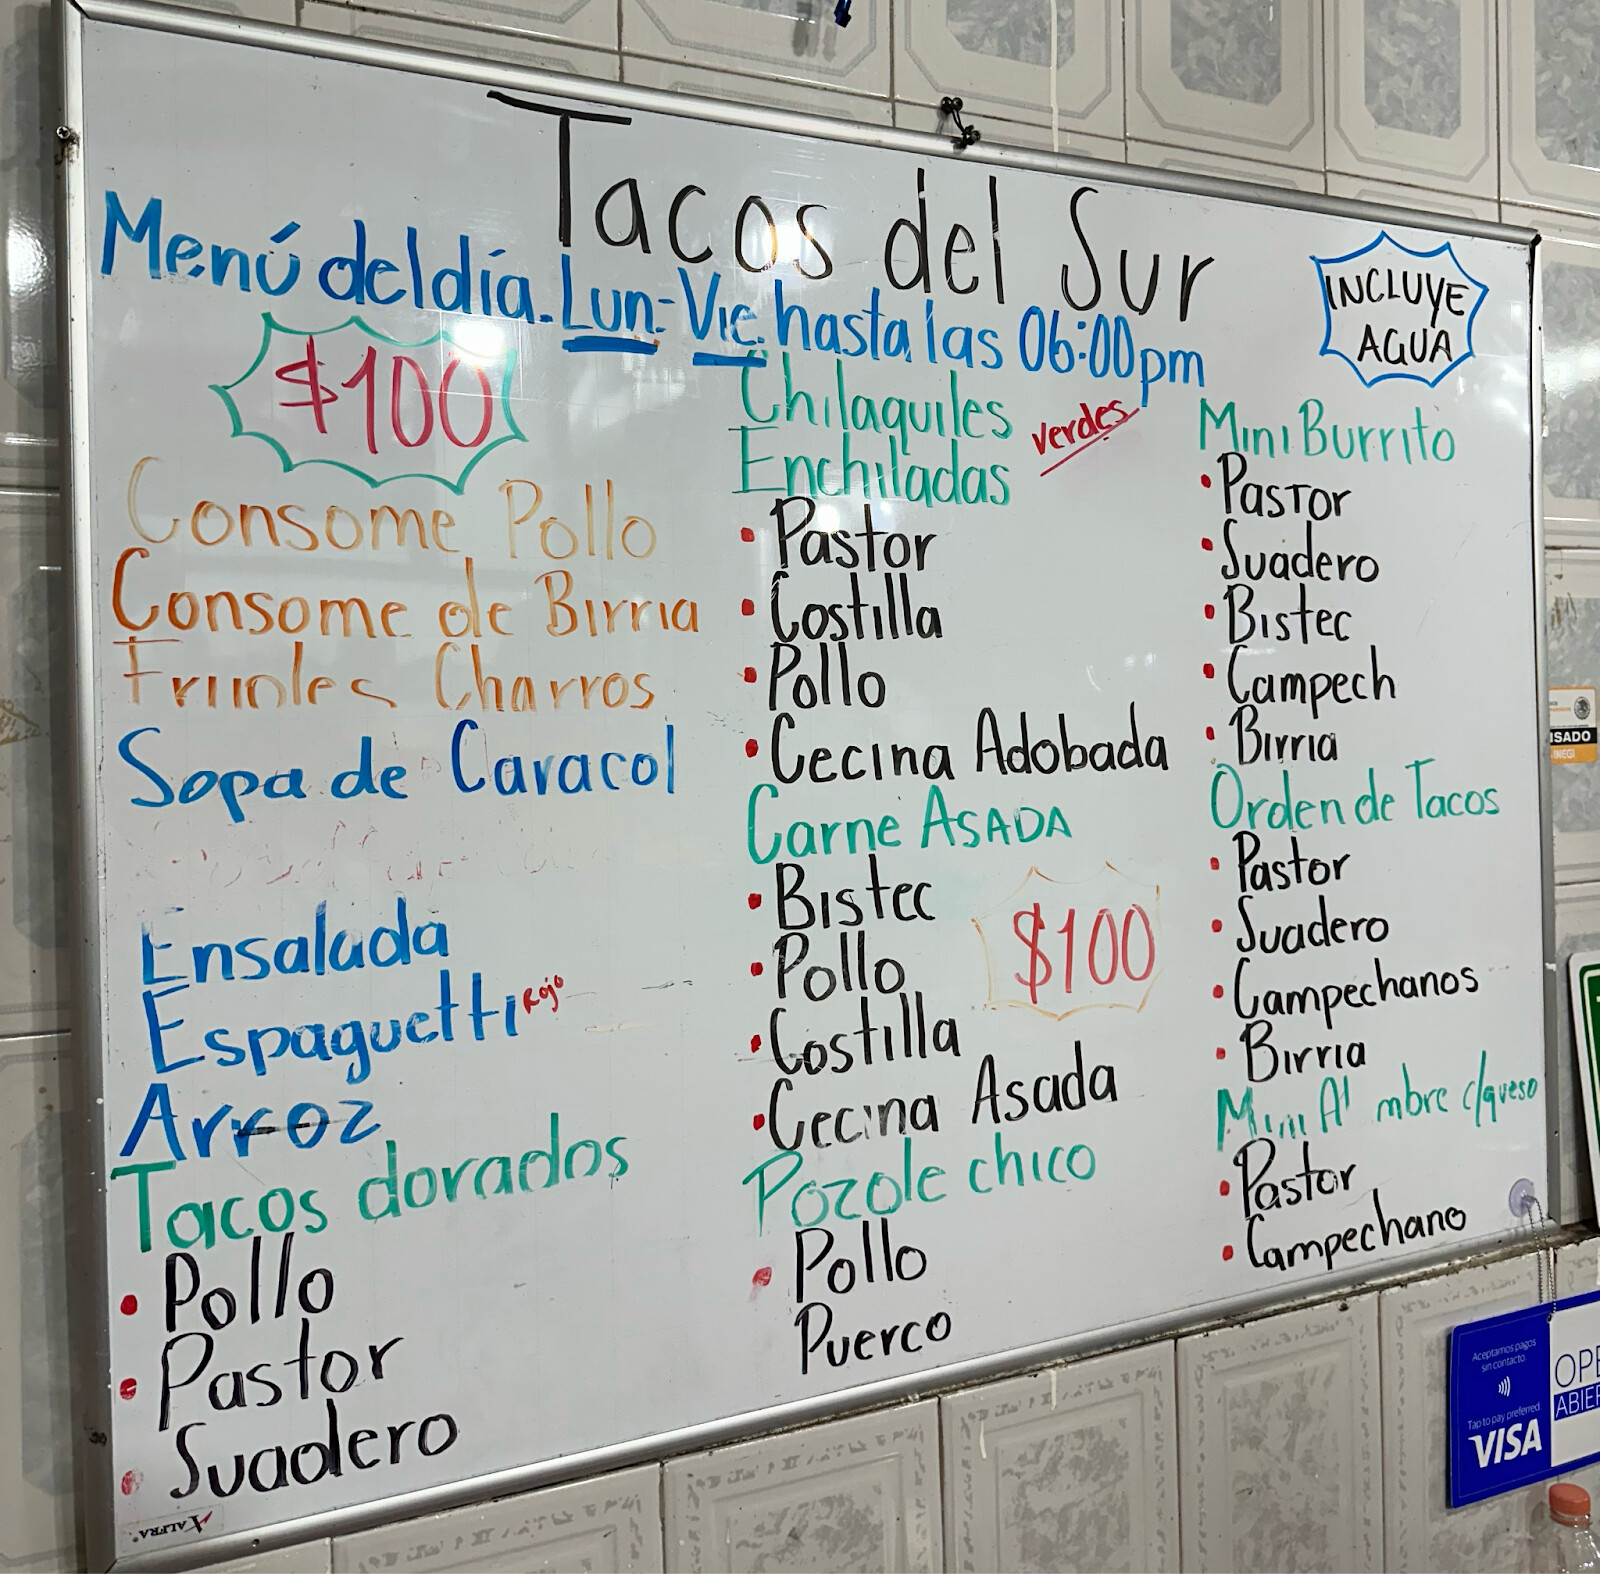 Tacos del Sur
Menú del día. Lun-Vie. hasta las 06:00pm
INCLUYE
AGUA
$100
Consome Pollo
Consome de Birria
Frijoles Charros
Sopa de Caracol
Ensalada
Espaguetti Rojo
Arroz
Tacos dorados
• Pollo
• Pastor
• Suadero
Chilaquiles
verdes
Enchiladas
• Pastor
• Costilla
• Pollo
• Cecina Adobada
Carne ASADA
• Bistec
• Pollo
• Costilla
• Cecina Asada
$100
Pozole chico
• Pollo
Puerco
Mini Burrito
• Pastor
• Suadero
• Bistec
• Campech
• Birria
Orden de Tacos
• Pastor
• Suadero
• Campechanos
• Birria
Mini Al mbre c/queso
• Pastor
• Campechano
ALFRA
SADO
INEGI
Aceptamos pagos
sin contacto
Tap to pay preferred
VISA
OPE
ABIER